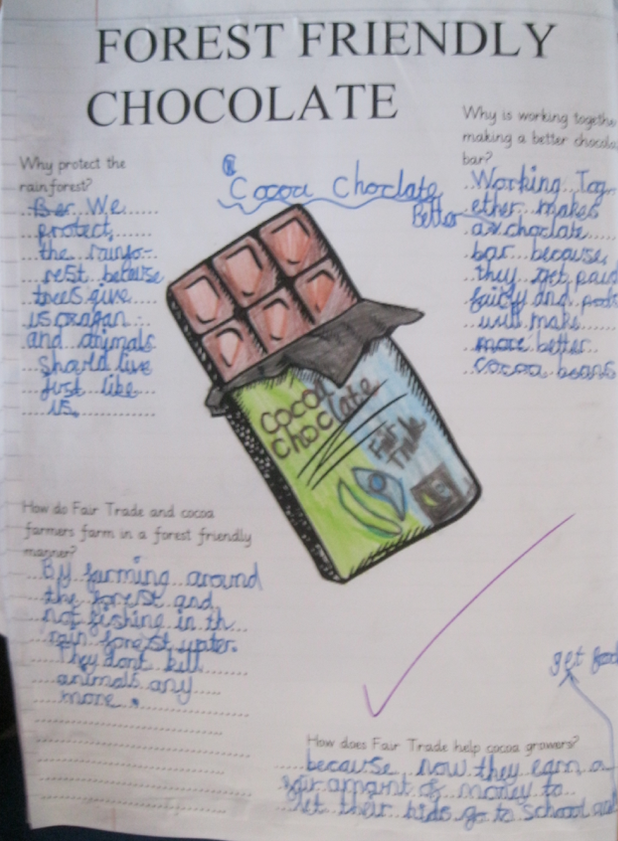 FOREST FRIENDLY
CHOCOLATE
Why protect the
rainforest?
We
protect
the rainfo-
rest because
trees give
us oxagan
and animals
should live
just like
us.
Cocoa Choclate
Why is working togethe
making a better chocola
bar?
Working Tog
ether makes
a Better choclate
bar because
they get paid
fairly and
will make
more better
cocoa beans
cocoa
chocolate
Fair
Trade
How do Fair Trade and cocoa
farmers farm in a forest friendly
manner?
By farming around
the forest and
not fishine in th
rain forest water.
They dont kill
animals any
more.
How does Fair Trade help cocoa growers?
because now they earn a
amount of money to
let their kids go to school and
get food